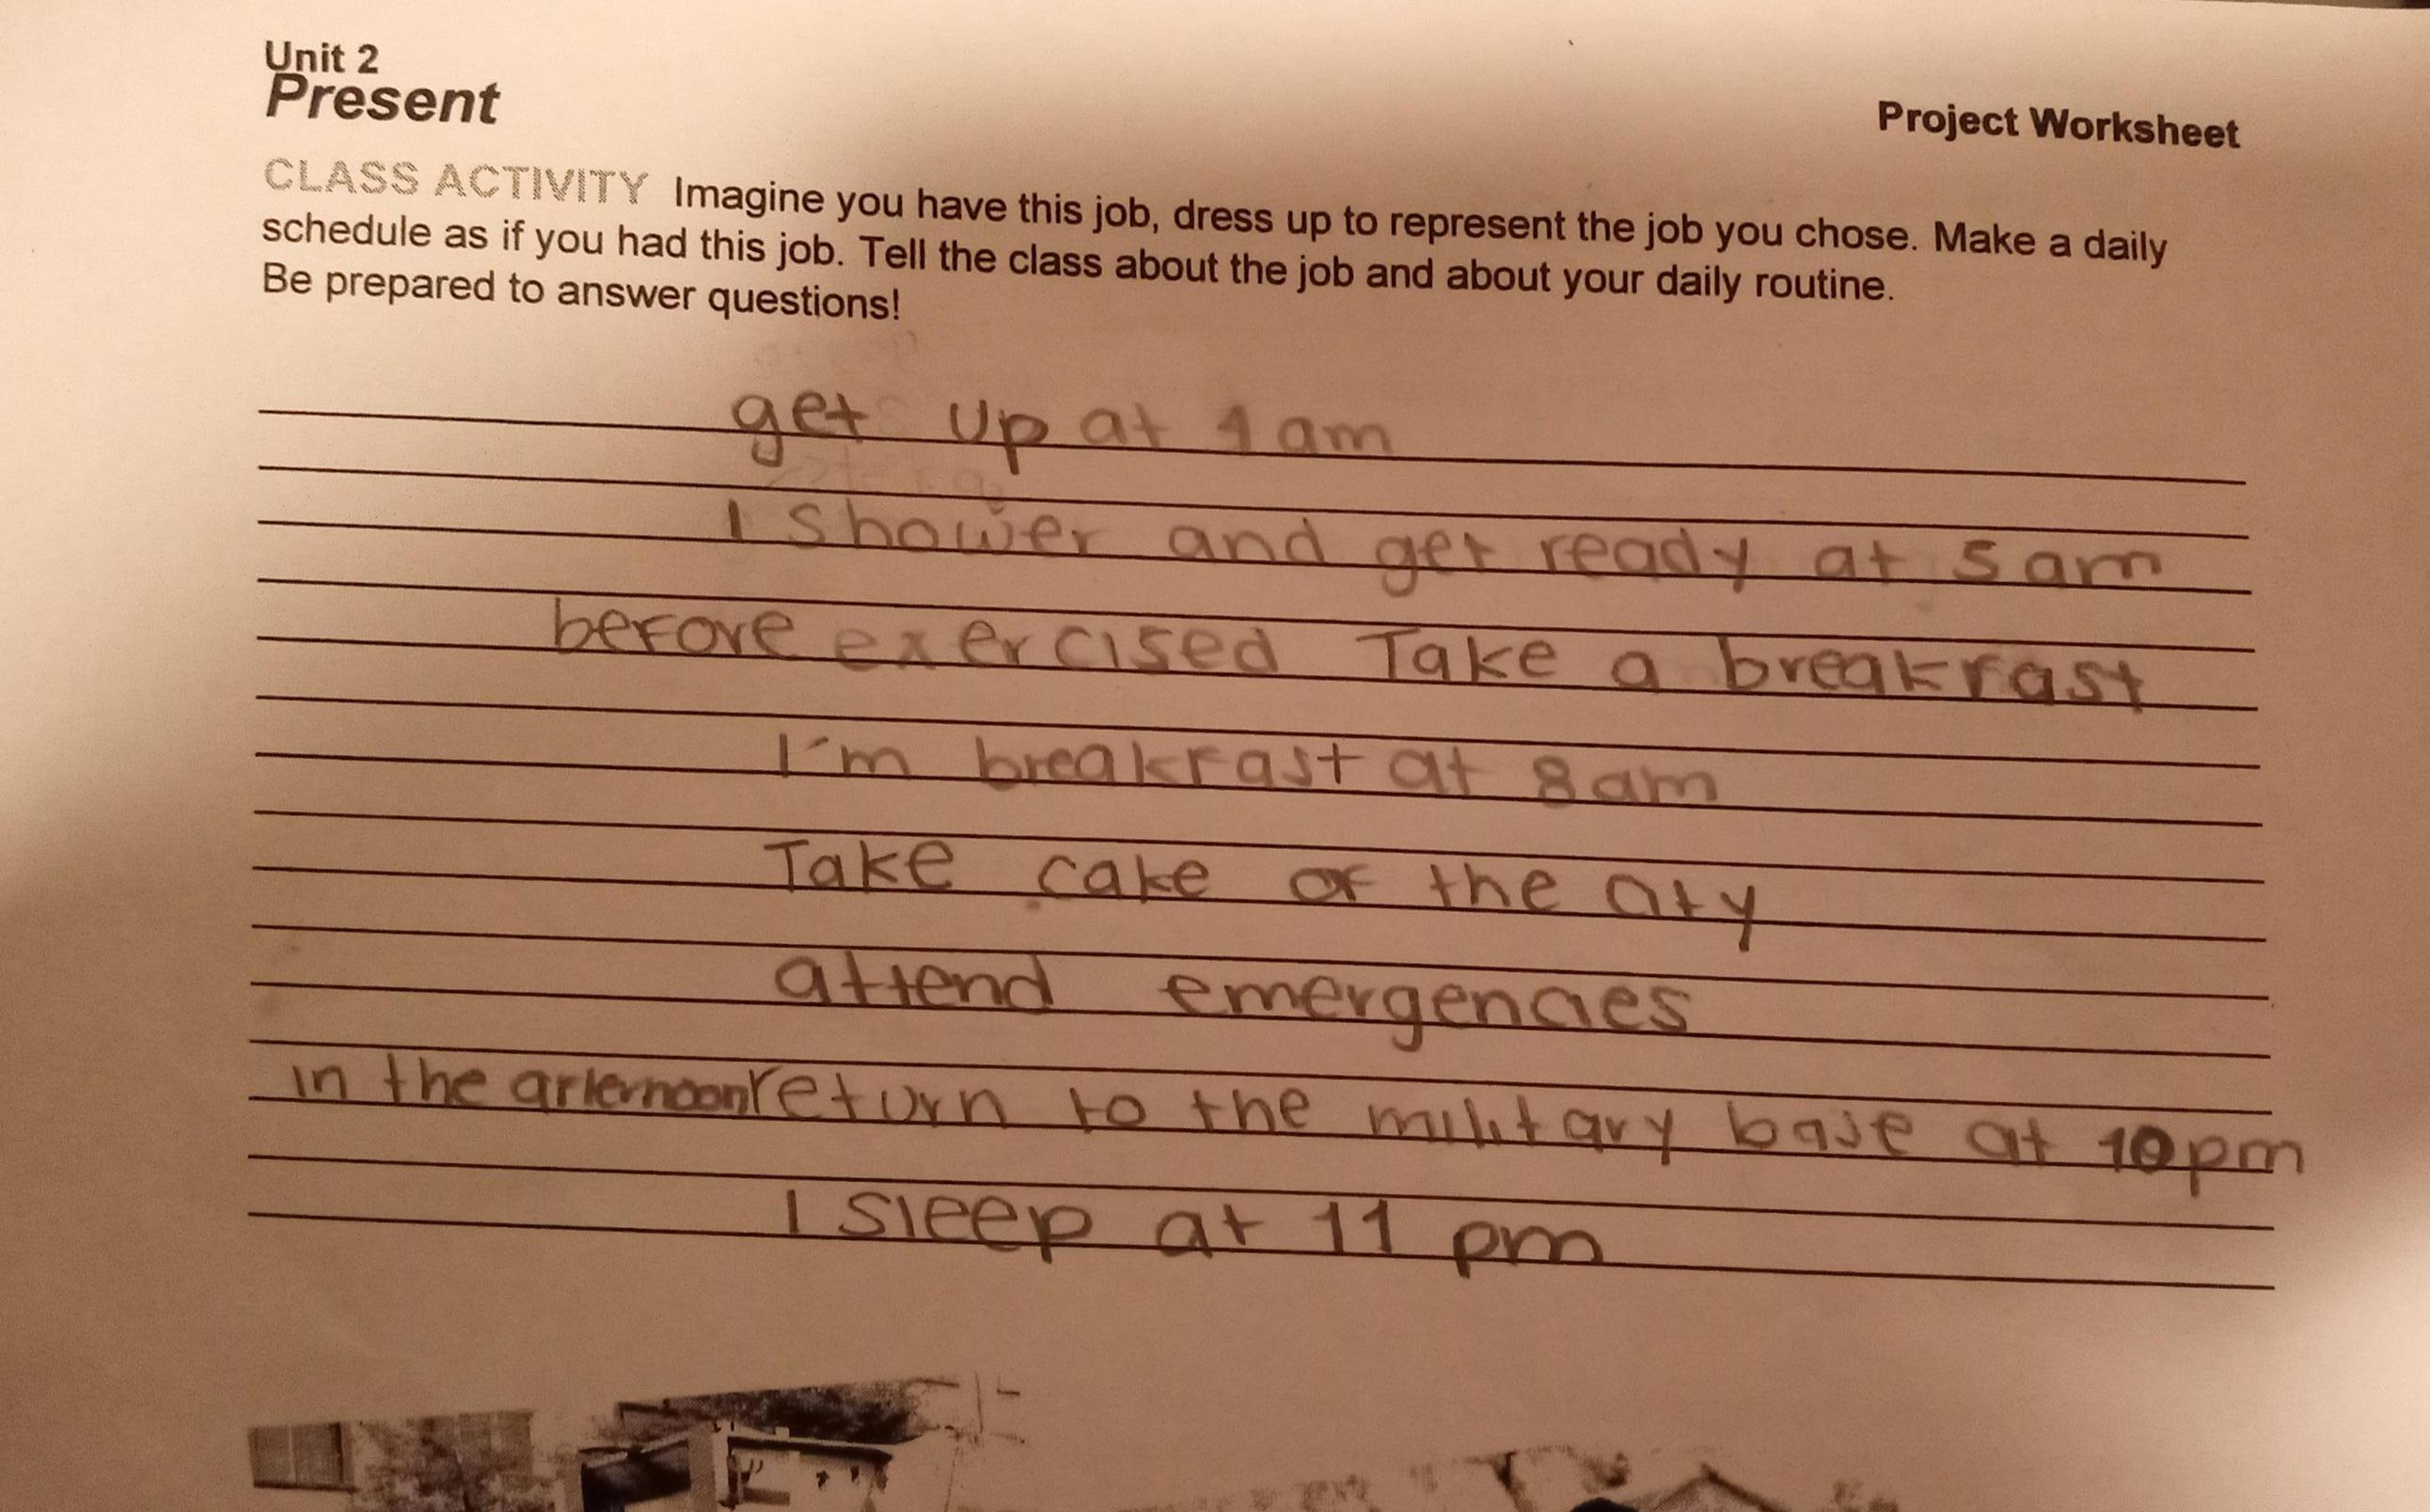 Unit 2
Present
Project Worksheet
CLASS ACTIVITY Imagine you have this job, dress up to represent the job you chose. Make a daily
schedule as if you had this job. Tell the class about the job and about your daily routine.
Be prepared to answer questions!
get up at 4 am
I shower and get ready at 5 am
before exercised Take a breakfast
I'm breakfast at 8 am
Take cake of the city
attend emergencies
in the afternoon return to the military base at 10 pm
I sleep at 11 pm